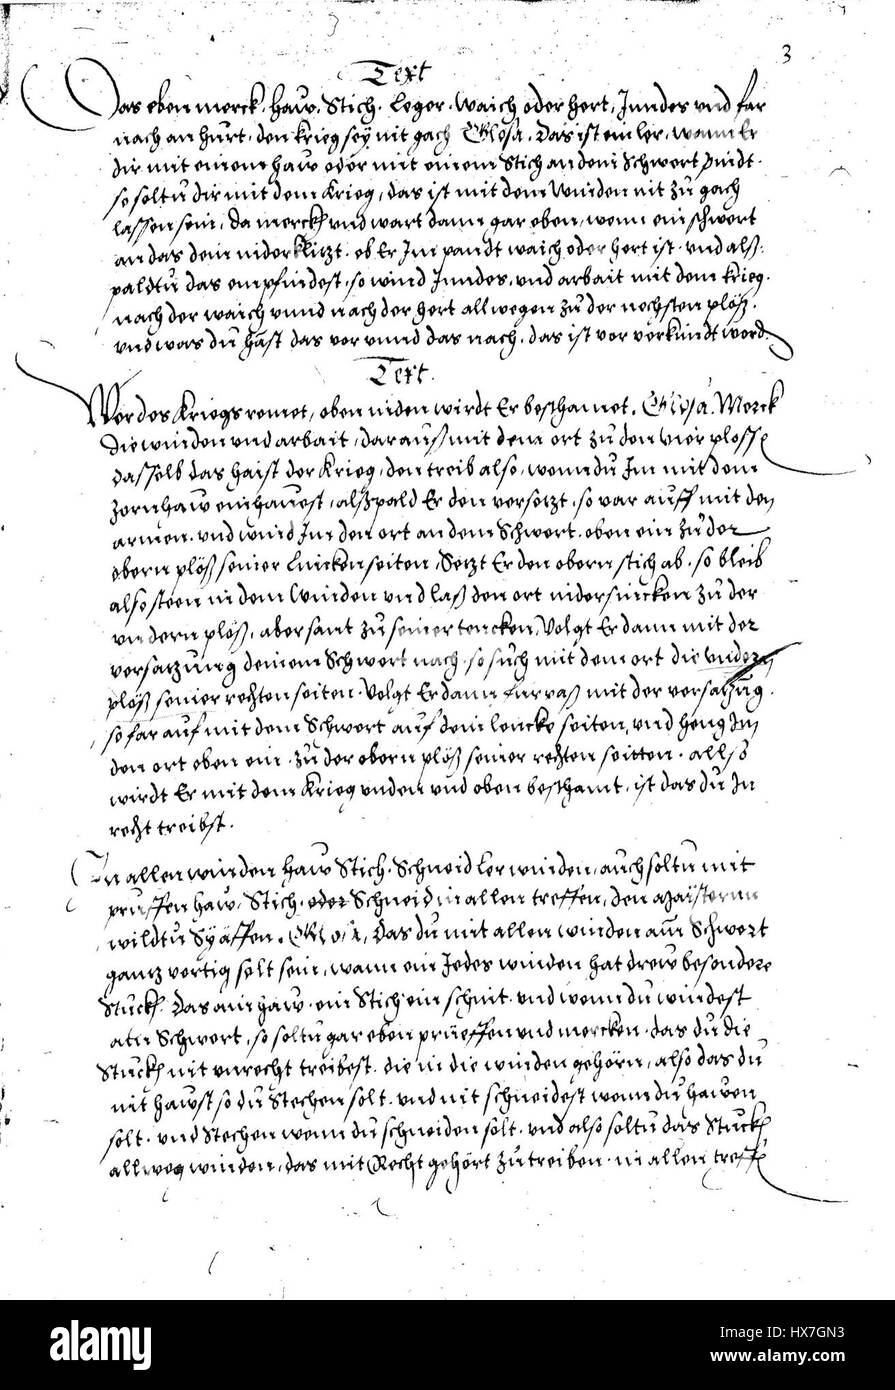 3
Text
Das eben merck. haw. Stich. Leger. waich oder hert, Inndes und far
nach an hurt. den krieg sey nit gach Glosa. das ist ein ler, wann Er
dir mit einem haw oder mit einem Stich an dein Schwert pindt.
so soltu dir mit dem Krieg, das ist mit dem winden nit zu gach
lassen sein, da merck und wart dann gar eben, wenn ein schwert
an das dein niderklitzt. ob Er Im pandt waich oder hert ist. und alß
paldtu das empfindest. so wind Inndes. und arbait mit dem krieg.
nach der waich unnd nach der hert allwegen zu der nechsten plöß.
und was du hast das vor unnd das nach. das ist vor verkundt word
Text.
Wer des Kriegs remet, oben niden wirdt Er beschamet. Glosa. Merck
die winden und arbait, darauß mit dem ort zu den vier plossn
dasselb das haist der Krieg, den treib also, wenn du Im mit dem
zornhaw einhauest, alßpald Er den versetzt. so var auff mit den
armen. und wind Im den ort an dem Schwert. oben ein zu der
obern plöß seiner Lincken seiten, Setzt Er den obern stich ab. so bleib
also steen in dem Winden und laß den ort nidersincken zu der
undern plöß, aber samt zu seiner lencken, Volgt Er dann mit der
versatzung deinem Schwert nach. so such mit dem ort die undern
plöß seiner rechten seiten. Volgt Er dann furpaß mit der versatzung.
so far auf mit dem Schwert auf dein lencke seiten, und heng Im
den ort oben ein. zu der obern plöß seiner rechten seitten. allso
wirdt Er mit dem Krieg unden und oben beschamt, ist das du In
recht treibst.
In allen winden haw Stich. Schneid Ler winden, auch soltu mit
pruffen haw. Stich. oder Schneid in allen treffen, den Maistern
wildtu Schäffen. Glosa, das du mit allen winden am Schwert
gantz vertig solt sein, wann ein Jedes winden hat drew besondere
Stuck. Das ain haw. ein Stich ein schnit. und wenn du windest
am Schwert, so soltu gar eben prüeffen und mercken. das du die
Stuck nit unrecht treibest. die in die winden gehörn, also das du
nit hawst so du Stechen solt. und nit schneidest wenn du hawen
solt. und Stechen wenn du schneiden solt. und also soltu das Stuck
allweg winden, das mit Recht gehört zu treiben. in allen treffn
alamy
Image ID: HX7GN3
www.alamy.com